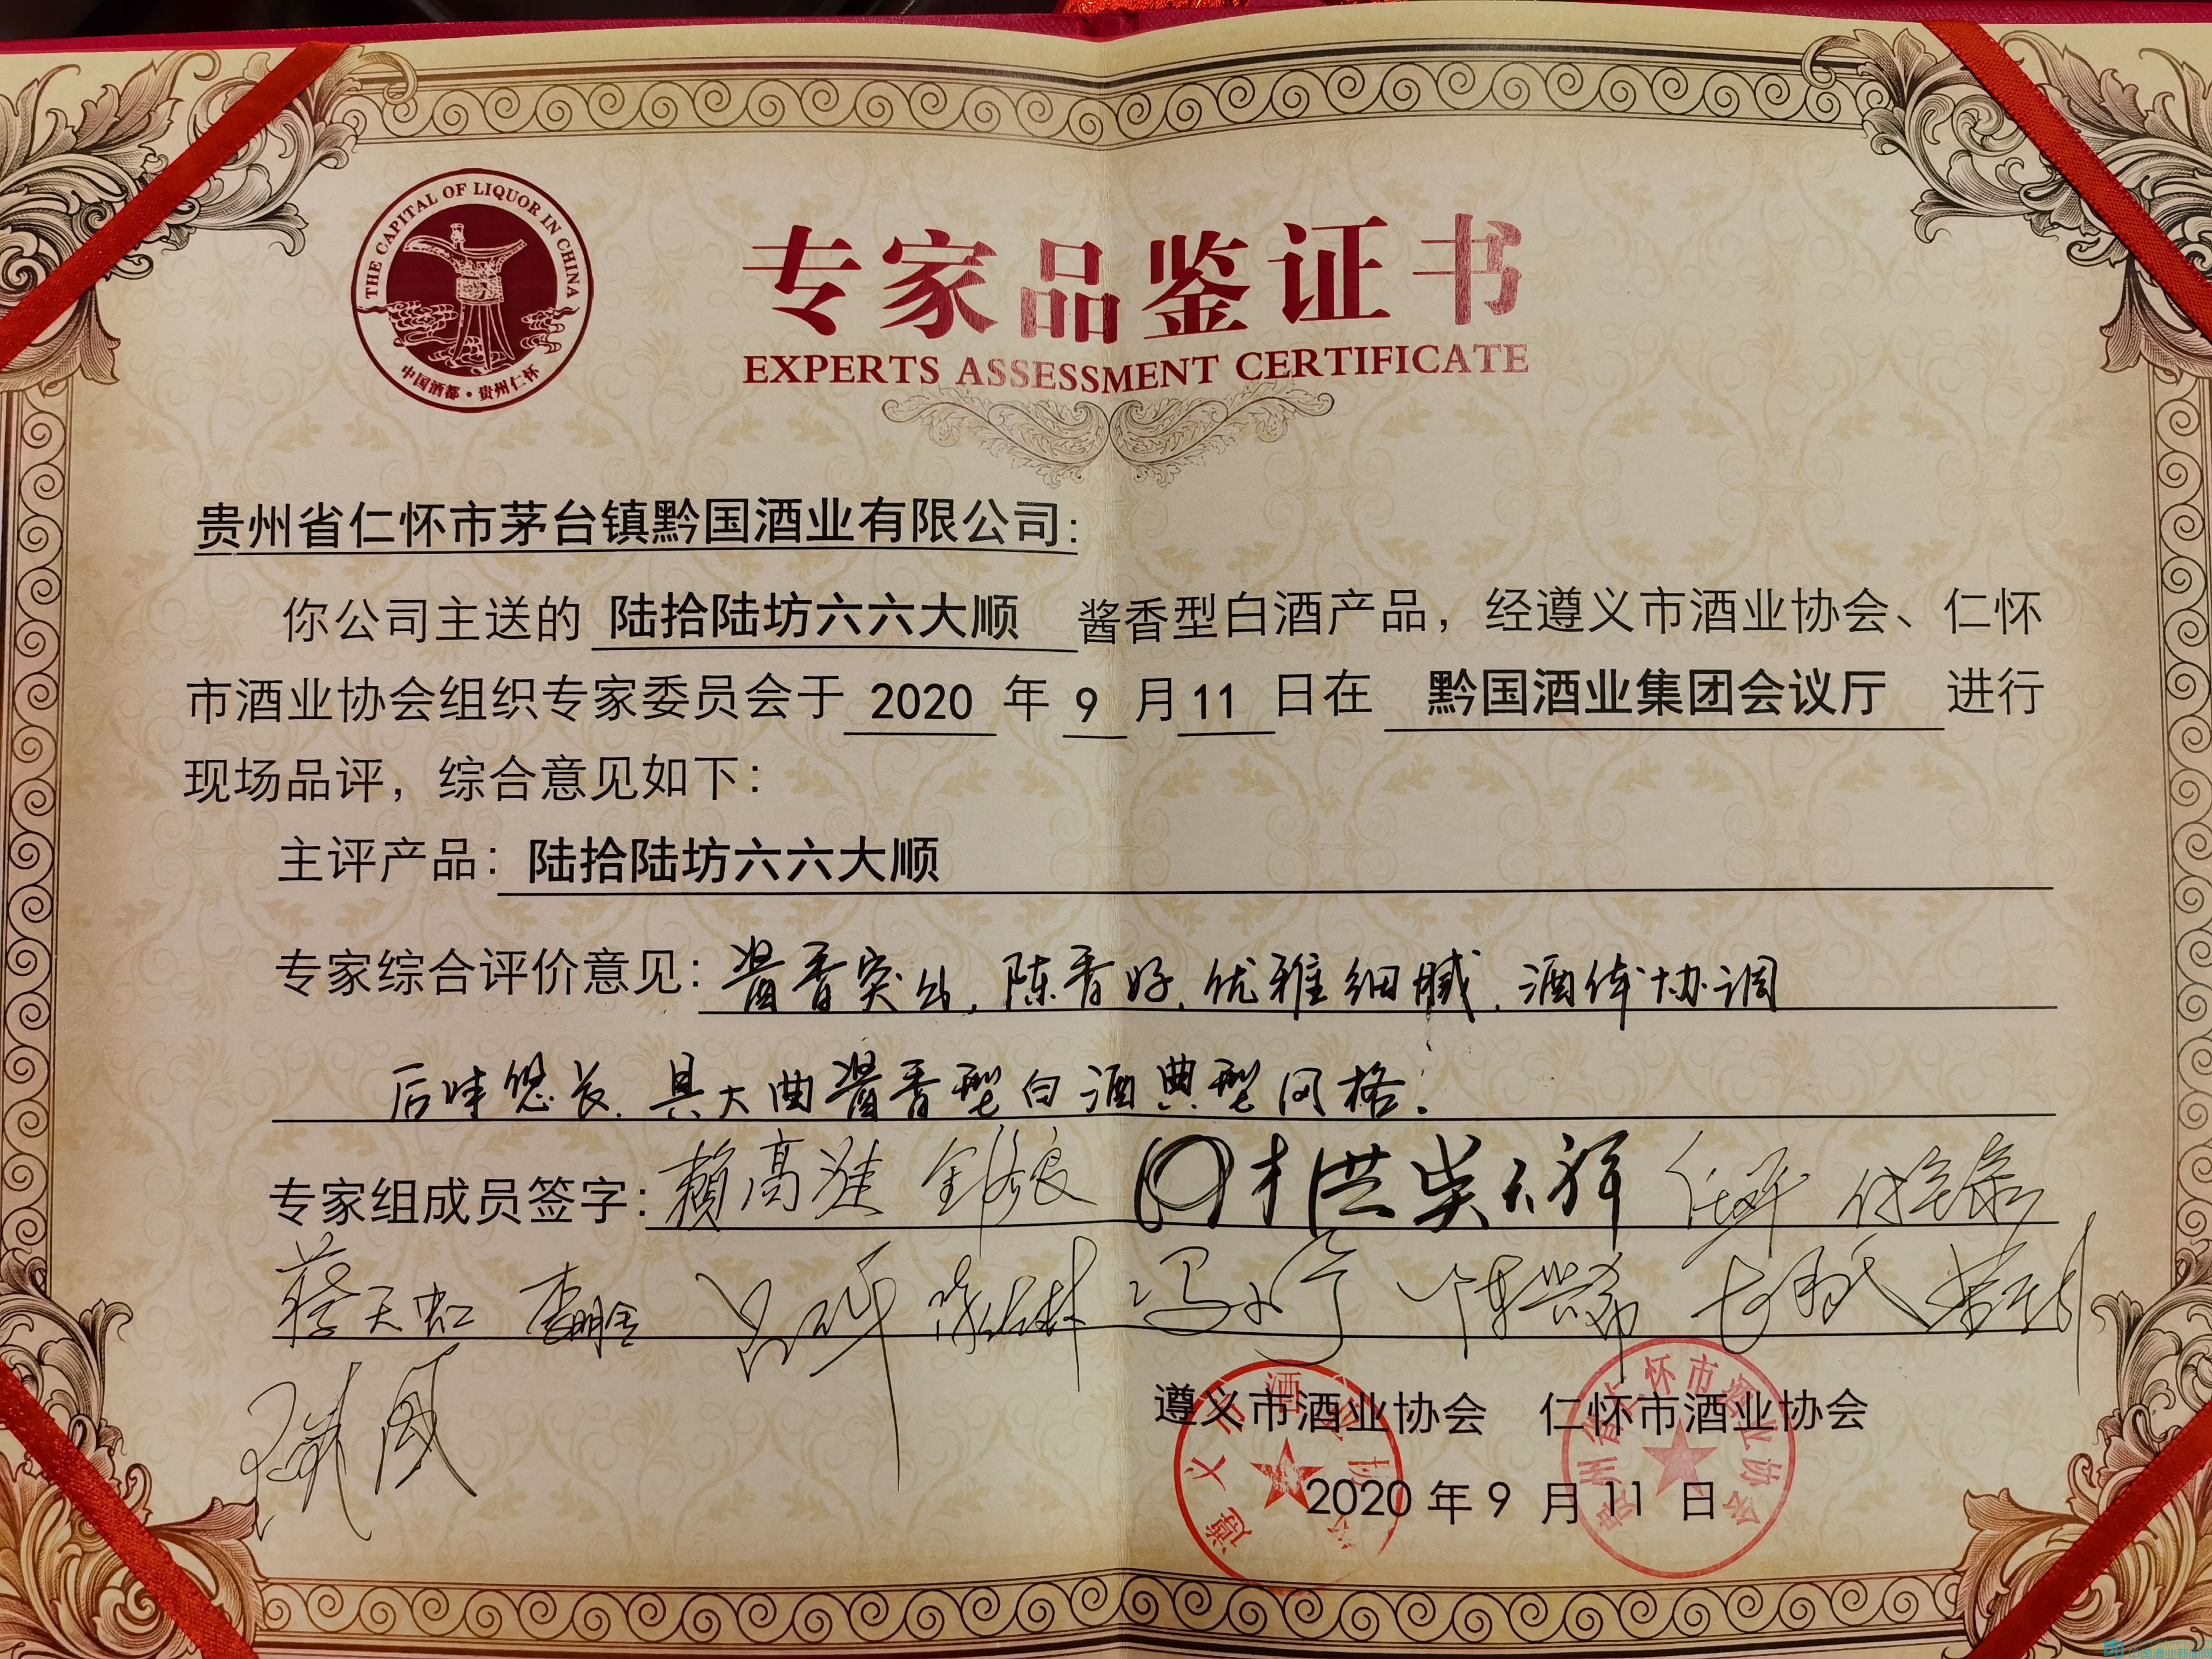 THE CAPITAL OF LIQUOR IN CHINA
中国酒都·贵州仁怀
专家品鉴证书
EXPERTS ASSESSMENT CERTIFICATE
贵州省仁怀市茅台镇黔国酒业有限公司:
你公司主送的 陆拾陆坊六六大顺 酱香型白酒产品，经遵义市酒业协会、仁怀
市酒业协会组织专家委员会于 2020 年 9 月 11 日在 黔国酒业集团会议厅 进行
现场品评，综合意见如下：
主评产品：陆拾陆坊六六大顺
专家综合评价意见：酱香突出，陈香好，优雅细腻，酒体协调
后味悠长，具大曲酱香型白酒典型风格。
专家组成员签字：
蔡天虹
遵义市酒业协会 仁怀市酒业协会
2020 年 9 月 11 日